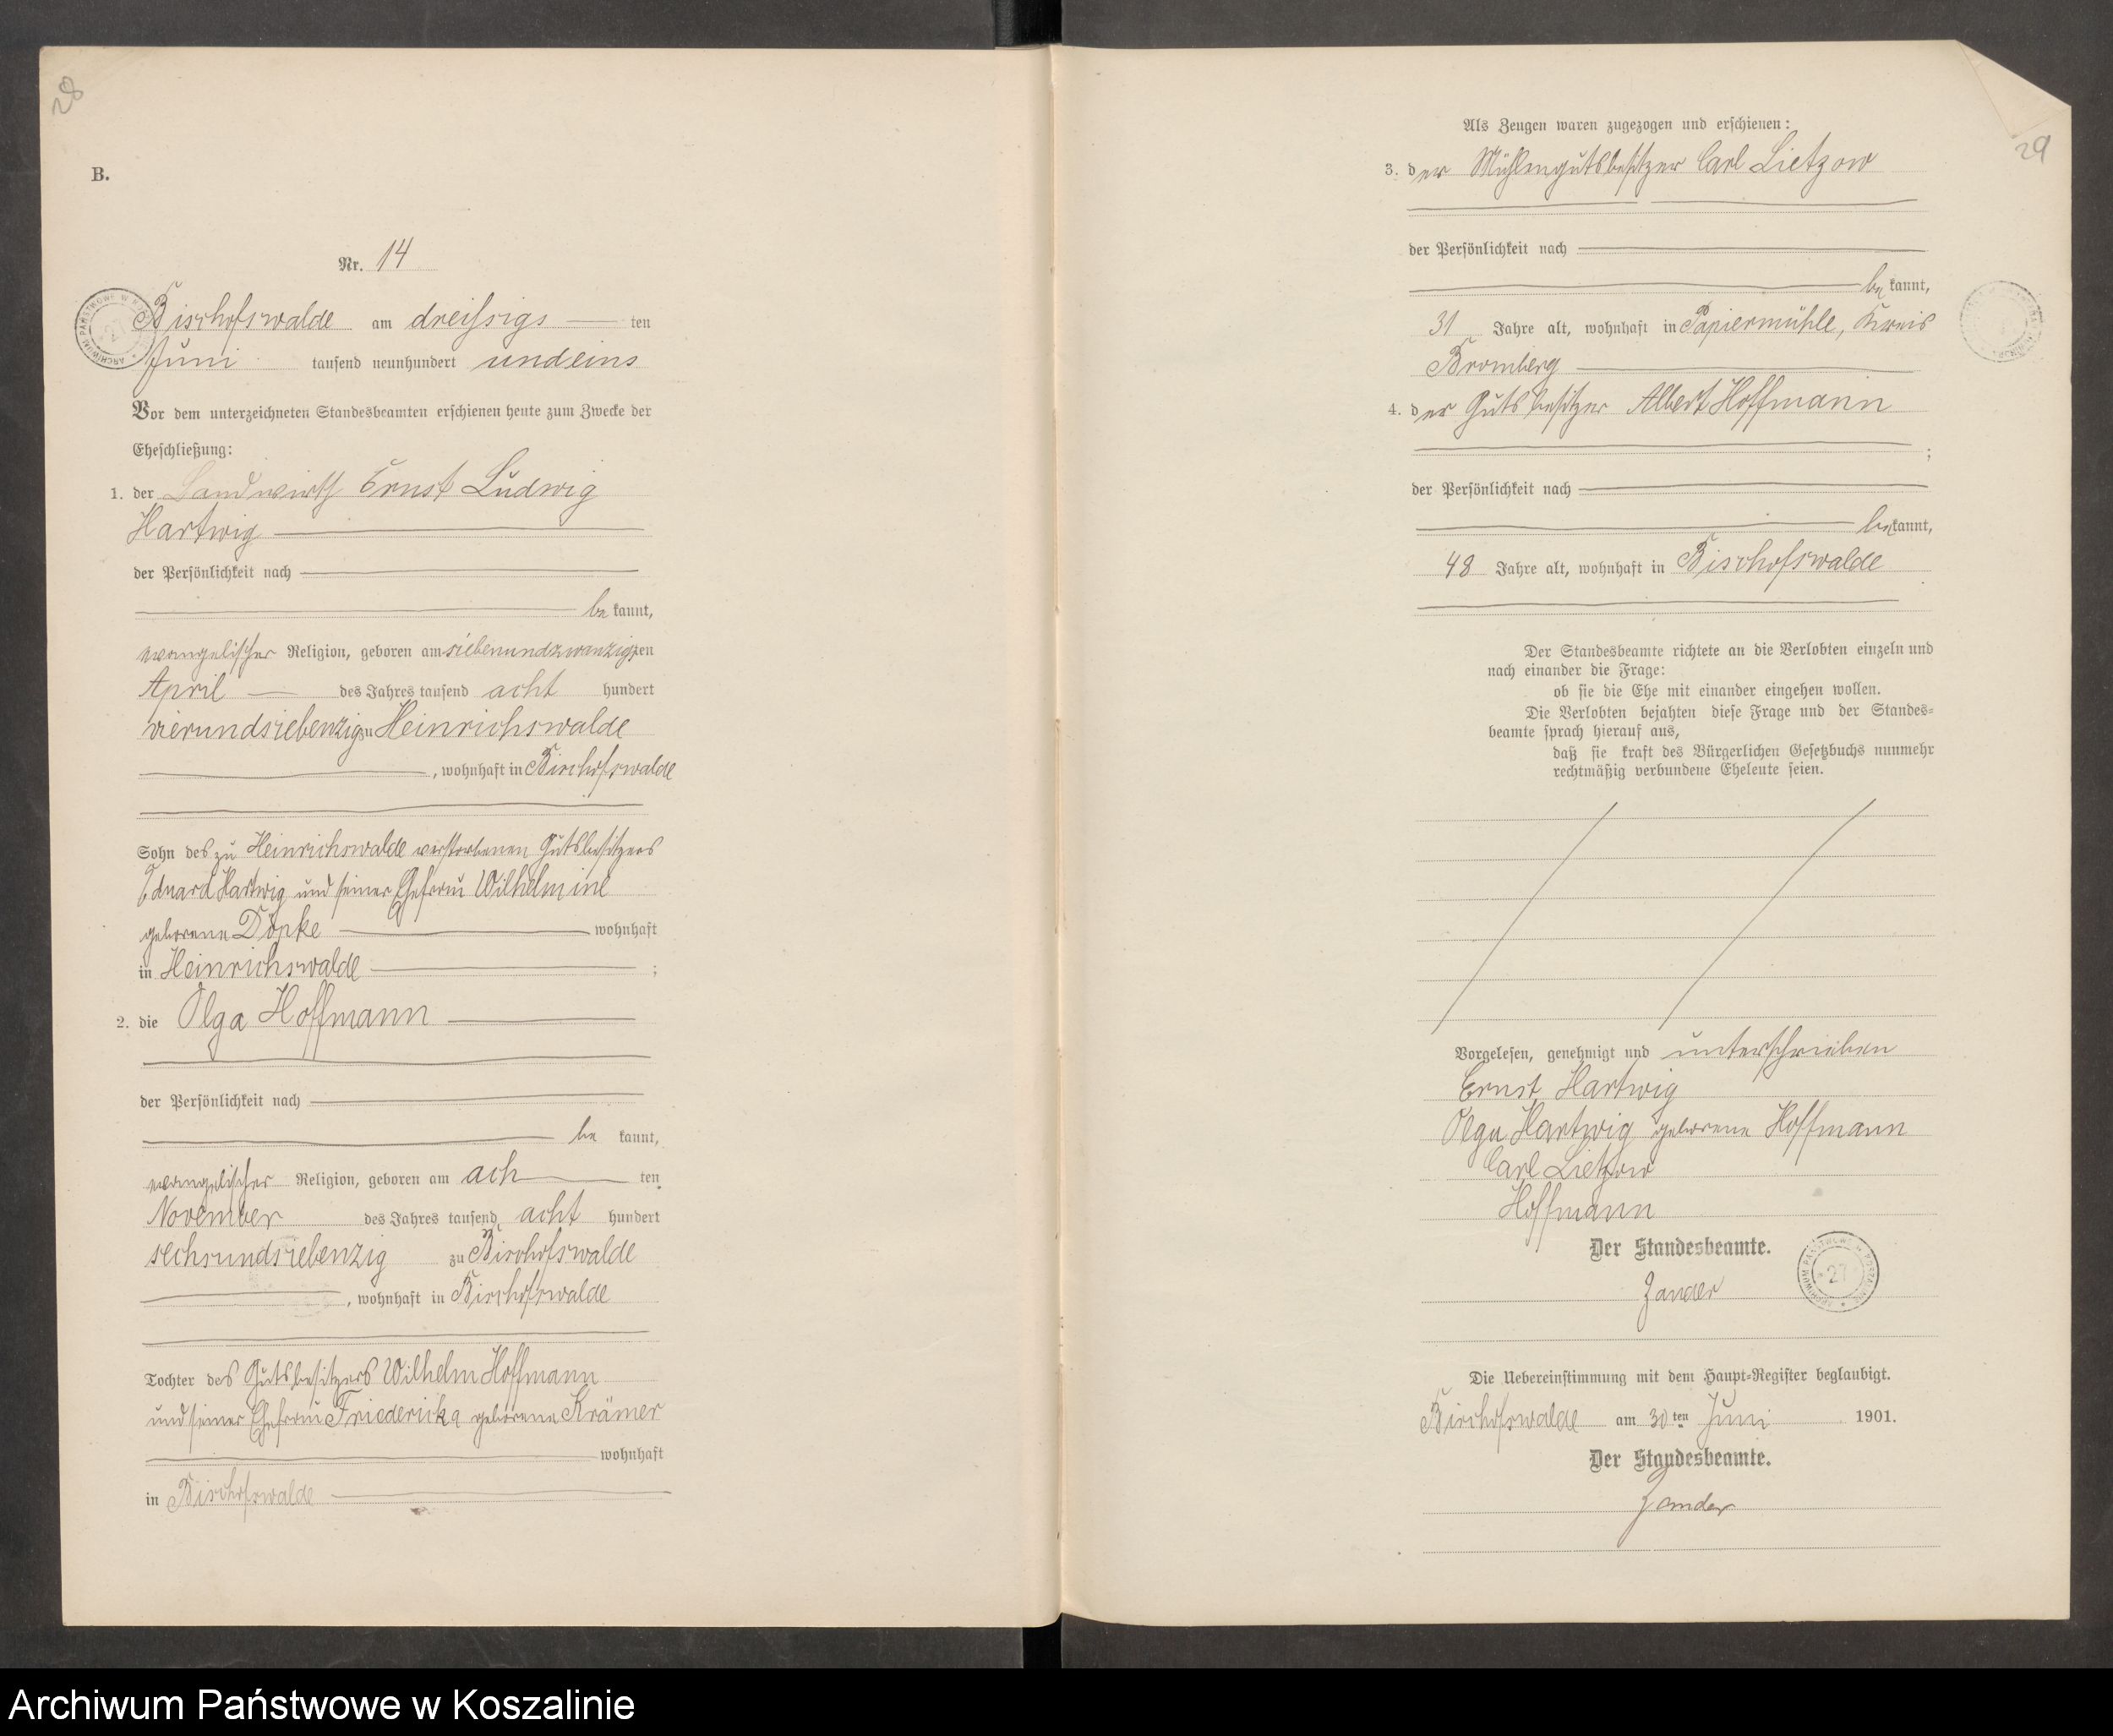 28
B.
Nr. 14
Bischofswalde am dreißigs ten
Juni tausend neunhundert undeins
Vor dem unterzeichneten Standesbeamten erschienen heute zum Zwecke der
Eheschließung:
1. der Landwirth Ernst Ludwig
Hartwig
der Persönlichkeit nach
be kannt,
evangelischer Religion, geboren am siebenundzwanzigsten
April des Jahres tausend acht hundert
vierundsiebenzig zu Heinrichswalde
, wohnhaft in Bischofswalde
Sohn des zu Heinrichswalde verstorbenen Gutsbesitzers
Eduard Hartwig und seiner Ehefrau Wilhelmine
geborene Döpke wohnhaft
in Heinrichswalde ;
2. die Olga Hoffmann
der Persönlichkeit nach
be kannt,
evangelischer Religion, geboren am ach ten
November des Jahres tausend acht hundert
sechsundsiebenzig zu Bischofswalde
, wohnhaft in Bischofswalde
Tochter des Gutsbesitzers Wilhelm Hoffmann
und seiner Ehefrau Friedericka geborene Krämer
wohnhaft
in Bischofswalde
29
Als Zeugen waren zugezogen und erschienen:
3. der Mühlengutsbesitzer Carl Lietzow
der Persönlichkeit nach
be kannt,
31 Jahre alt, wohnhaft in Papiermühle, Kreis
Bromberg
4. der Gutsbesitzer Albert Hoffmann
;
der Persönlichkeit nach
be kannt,
48 Jahre alt, wohnhaft in Bischofswalde
Der Standesbeamte richtete an die Verlobten einzeln und
nach einander die Frage:
ob sie die Ehe mit einander eingehen wollen.
Die Verlobten bejahten diese Frage und der Standes-
beamte sprach hierauf aus,
daß sie kraft des Bürgerlichen Gesetzbuchs nunmehr
rechtmäßig verbundene Eheleute seien.
Vorgelesen, genehmigt und unterschrieben
Ernst Hartwig
Olga Hartwig geborene Hoffmann
Carl Lietzow
Hoffmann
Der Standesbeamte.
Zander
27
Die Uebereinstimmung mit dem Haupt-Register beglaubigt.
Bischofswalde am 30ten Juni 1901.
Der Standesbeamte.
Zander
Archiwum Państwowe w Koszalinie